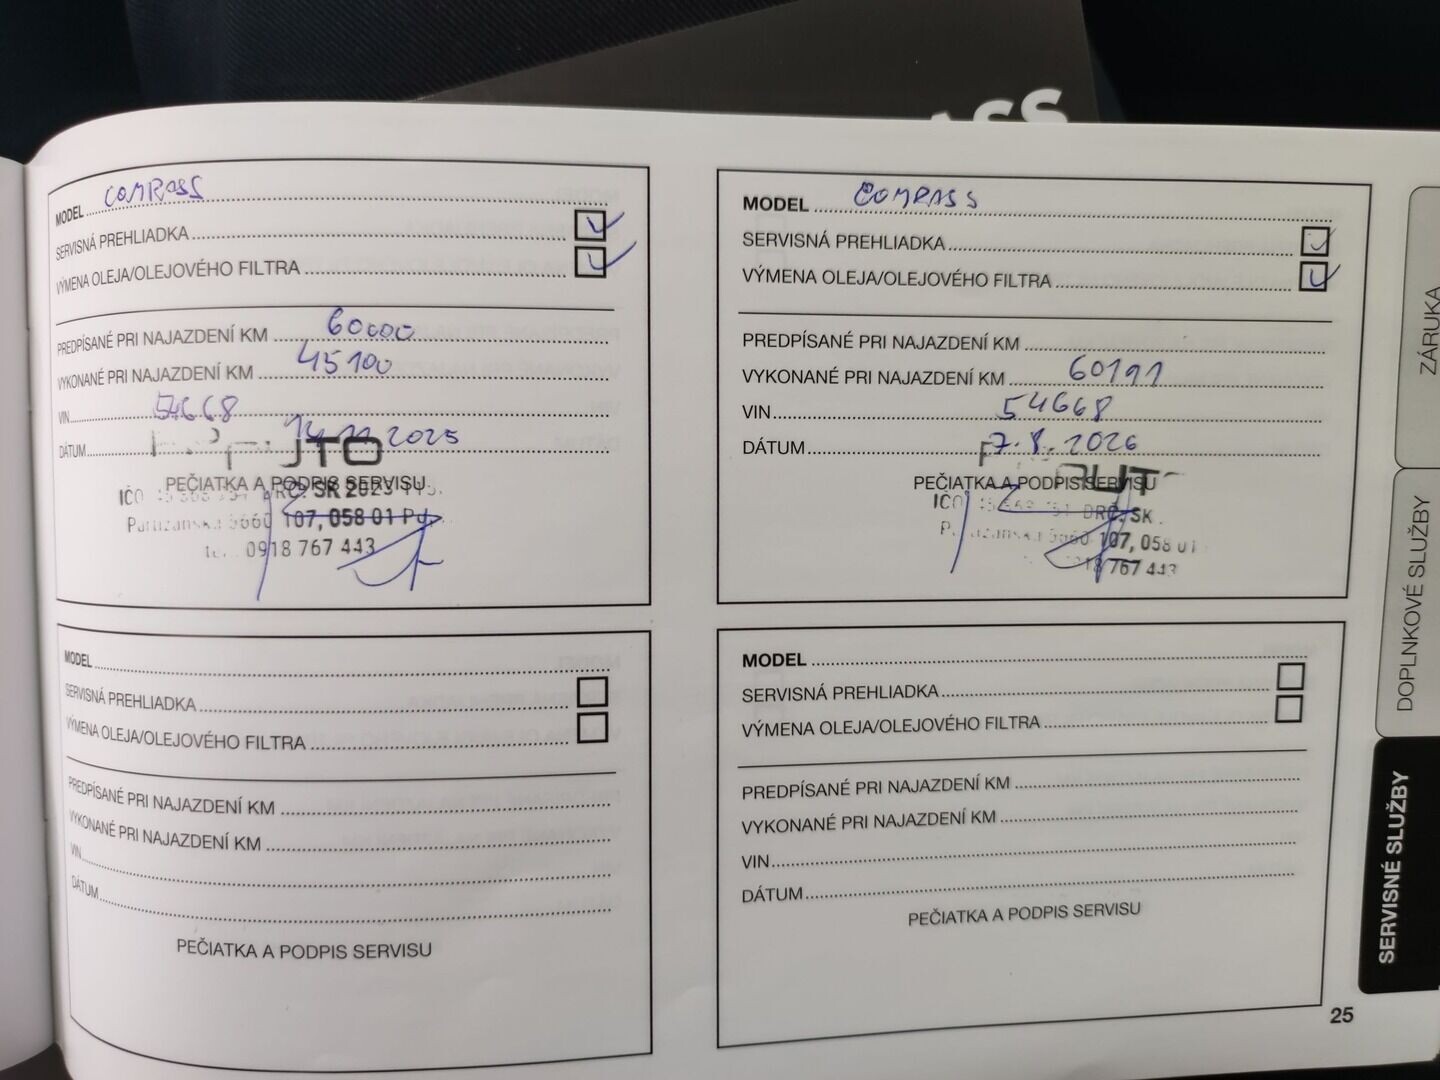 ASS
MODEL COMPASS
SERVISNÁ PREHLIADKA
VÝMENA OLEJA/OLEJOVÉHO FILTRA
PREDPÍSANÉ PRI NAJAZDENÍ KM 60000
VYKONANÉ PRI NAJAZDENÍ KM 45100
VIN 54668
DÁTUM 14.11.2025
PEČIATKA A PODPIS SERVISU
IČO DRČ: SK 2023
Partizánska 107, 058 01
0918 767 443
MODEL COMPASS
SERVISNÁ PREHLIADKA
VÝMENA OLEJA/OLEJOVÉHO FILTRA
PREDPÍSANÉ PRI NAJAZDENÍ KM
VYKONANÉ PRI NAJAZDENÍ KM 60191
VIN 54668
DÁTUM 7.8.2026
PEČIATKA A PODPIS SERVISU
DRČ: SK
107, 058 01
767 443
MODEL
SERVISNÁ PREHLIADKA
VÝMENA OLEJA/OLEJOVÉHO FILTRA
PREDPÍSANÉ PRI NAJAZDENÍ KM
VYKONANÉ PRI NAJAZDENÍ KM
VIN
DÁTUM
PEČIATKA A PODPIS SERVISU
MODEL
SERVISNÁ PREHLIADKA
VÝMENA OLEJA/OLEJOVÉHO FILTRA
PREDPÍSANÉ PRI NAJAZDENÍ KM
VYKONANÉ PRI NAJAZDENÍ KM
VIN
DÁTUM
PEČIATKA A PODPIS SERVISU
ZÁRUKA
DOPLNKOVÉ SLUŽBY
SERVISNÉ SLUŽBY
25